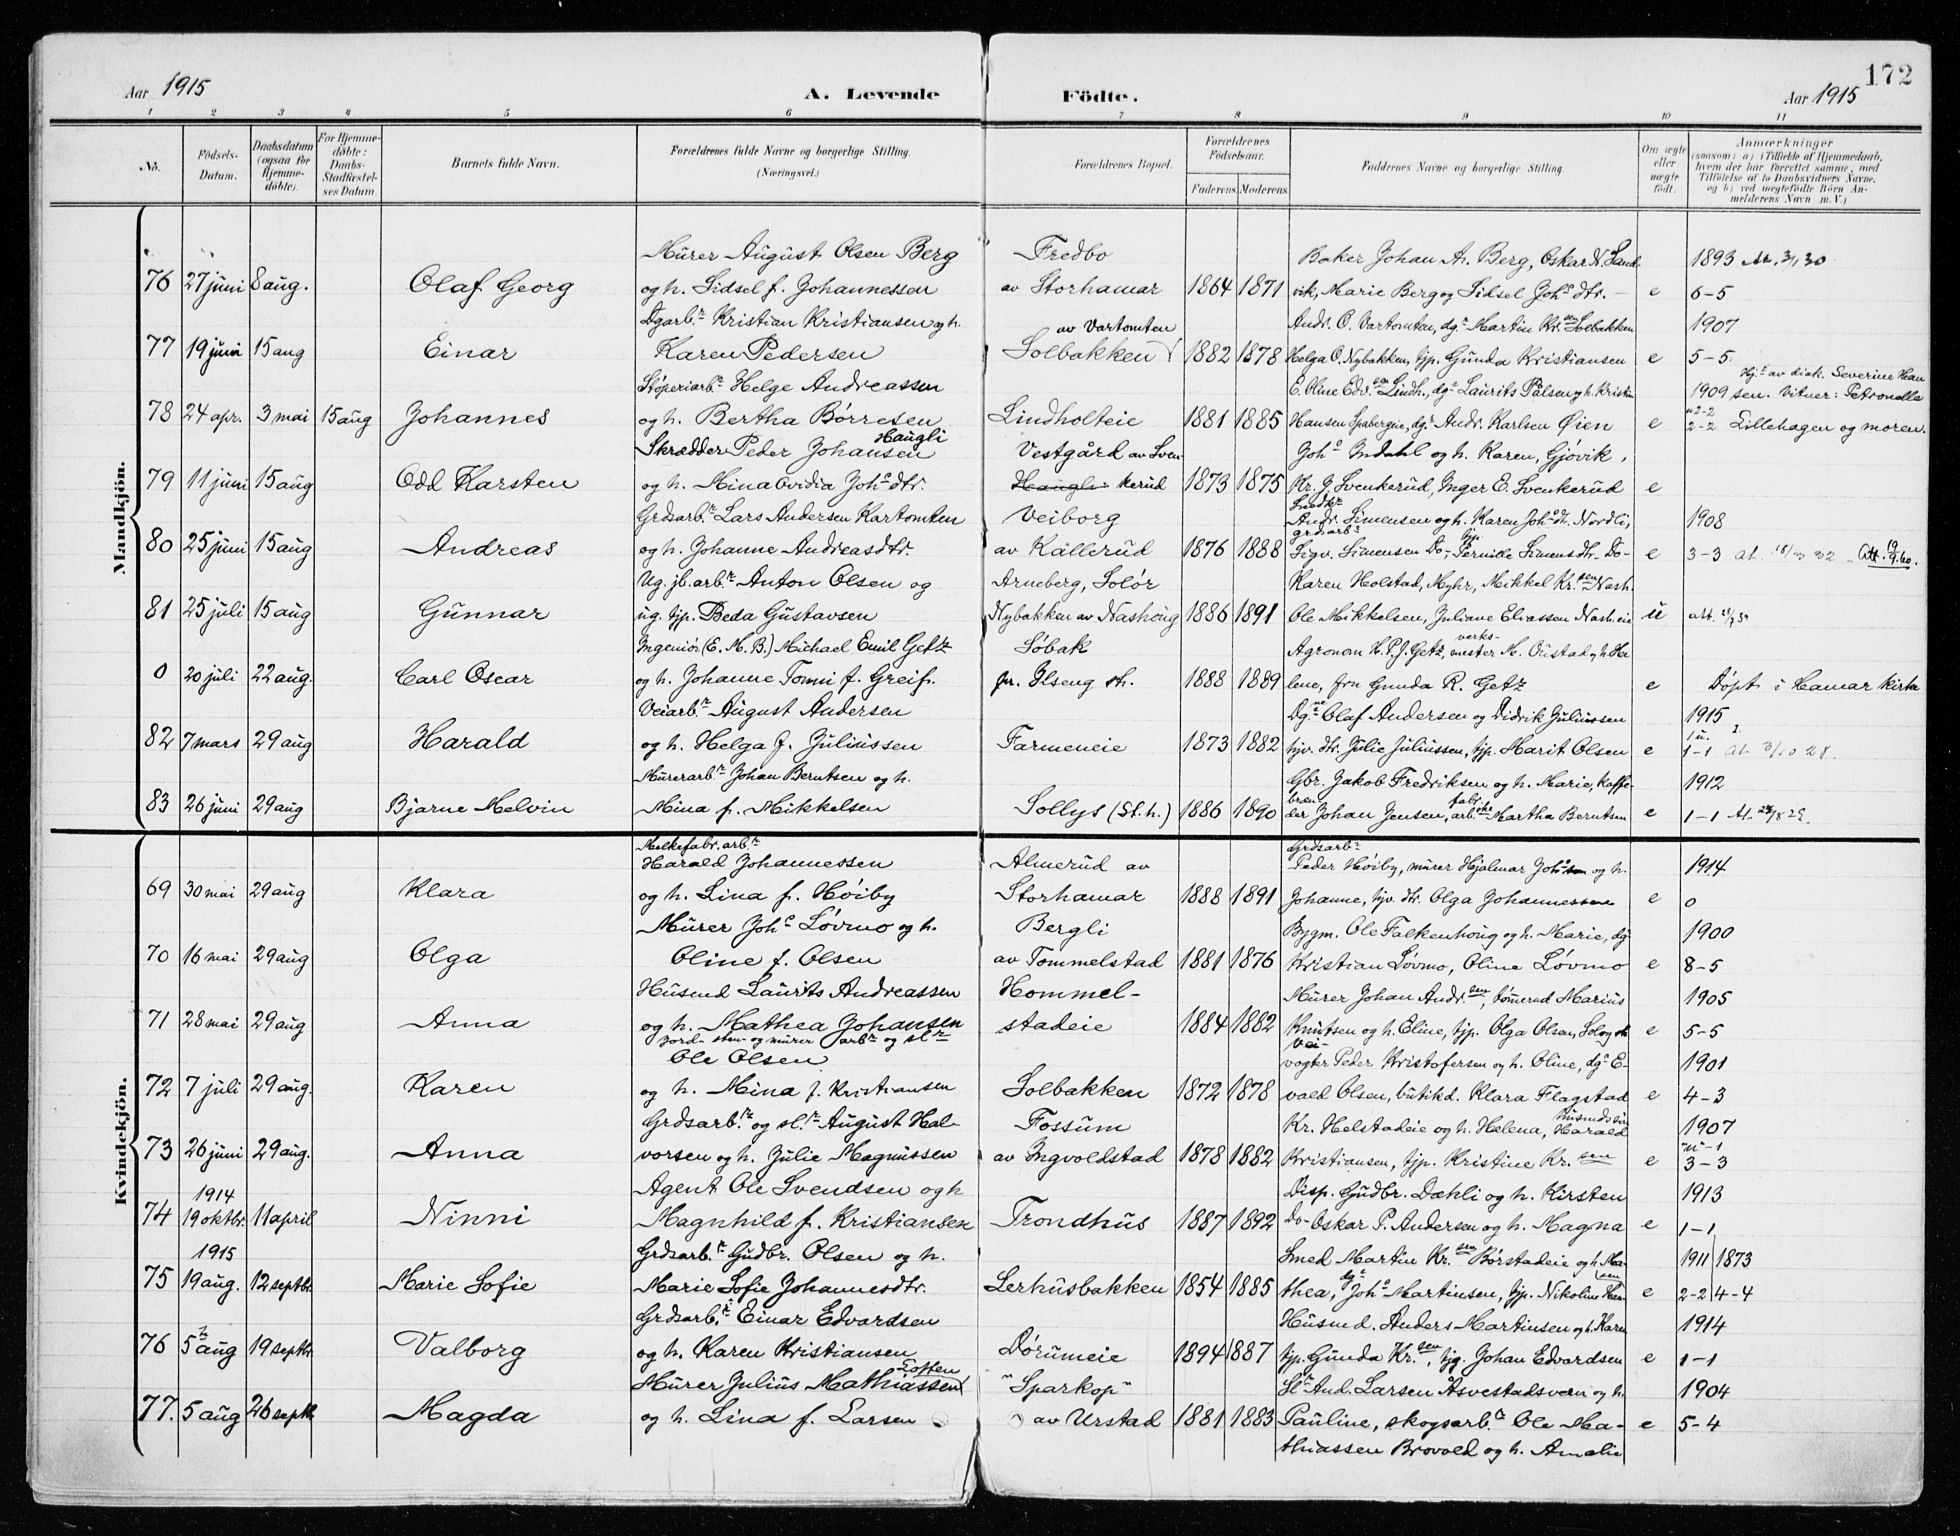 172
Aar 1915
A. Levende Födte.
Aar 1915
1 2 3 4 5 6 7 8 9 10 11
No.
Födsels-Datum.
Daabsdatum (ogsaa for Hjemme-döbte).
For Hjemme-döbte: Daabs-Stadfæstel-ses Datum.
Barnets fulde Navn.
Forældrenes fulde Navne og borgerlige Stilling.
(Næringsvei.)
Forældrenes Bopæl.
Forældrenes Födselsaar.
Faderens Moderens
Faddernes Navne og borgerlige Stilling.
Om ægte eller uægte födt.
Anmærkninger
(saasom: a) i Tilfælde af Hjemmedaab,
hvem der har forrettet samme, med
Tilföielse af to Daabsvidners Navne,
og b) ved uægtefödte Börn An-
melderens Navn m. V.)
Mandkjön.
Murer August Olsen Berg Fredbo Baker Johan A. Berg, Oskar N. Sand- 1893 3/1 30
76 27 juni 8 aug. Olaf Georg og h. Sidsel f. Johannessen av Storhamar 1864 1871 vik, Marie Berg og Sidsel Johs dtr. e 6-5
Dgarb.r Kristian Kristiansen og h. av Vartomten Andr. O. Vartomten, dgr Martin Kr.sen Solbakken 1907
77 19 juni 15 aug Einar Karen Pedersen Solbakken 1882 1878 Helga O. Nybakken, tjp. Gunda Kristiansen e 5-5
Støperiarb.r Helge Andreassen E. Oline Edv.sen Lindh., dgr Laurits Pålsen og h. Kristin 1909 Hj.d av diak. Severine Han
sen. Vitner: Petronelle
78 24 apr. 3 mai 15 aug Johannes og h. Bertha Børresen Lindholteie 1881 1885 Hansen Spabergeie, dgr. Andr. Karlsen Øien e 2-2 Lillehagen og moren.
Skrædder Peder Johansen Haugli Vestgård av Sven- Johs Indahl og h. Karen, Gjøvik,
79 11 juni 15 aug Odd Karsten og h. Mina Ovidia Johs dtr. Haugli kerud 1873 1875 Kr. J. Svenkerud, Inger E. Svenkerud e
Grdsarb.r Lars Andersen Kartomten Veiborg Andr. Simensen og h. Karen Johs dt. Nordli, 1908
80 25 juni 15 aug Andreas og h. Johanne Andreasdtr. av Kållerud 1876 1888 grdsarb.r Sigv. Simensen Do-, tjp. Pernille Simensdtr. Do- e 3-3
Ug. jb. arb.r Anton Olsen og Arneberg, Solør Karen Holstad, Myhr, Mikkel Kr.sen Nash.
81 25 juli 15 aug Gunnar ug. tjp. Beda Gustavsen Nybakken av Nashoug 1886 1891 Ole Mikkelsen, Juliane Eliassen Nash.eie u
Ingeniør (E. M. B.) Michael Emil Getz Søbak Agronom H. P. J. Getz, verks-mester M. Oustad og h. He
0 20 juli 22 aug. Carl Oscar og h. Johanne Tomni f. Greif. pr. Ilseng st. 1888 1889 lene, frn Gunda R. Getz e Döpt i Hamar kirke
Veiarb.r August Andersen Dg.ne Olaf Andersen og Didrik Juliussen 1915
82 7 mars 29 aug Harald og h. Helga f. Juliussen Farmeneie 1873 1882 hjv. dtr. Julie Juliussen, tjp. Marit Olsen e 1-1
Murerarb.r Johan Berntsen og h. Gbr. Jakob Fredriksen og h. Marie, kaffe- 1912
83 26 juni 29 aug Bjarne Melvin Mina f. Mikkelsen Sollys (St. h.) 1886 1890 brænder Johan Jensen, fabr. arb.ske Martha Berntsen e 1-1
Kvindekjön.
Melkefabr. arb.r
Harald Johannessen Almerud av Grdsarb.r Peder Høiby, murer Hjalmar Joh.sen og h. 1914
69 30 mai 29 aug Klara og h. Lina f. Høiby Storhamar 1888 1891 Johanne, hjv. dtr. Olga Johannessen e 0
Murer Johs Løvmo og h. Bergli Bygm. Ole Falkenhoug og h. Marie, dg 1900
70 16 mai 29 aug Olga Oline f. Olsen av Tommelstad 1881 1876 Kristian Løvmo, Oline Løvmo e 8-5
Husmd Laurits Andreassen Hommel- Murer Johan Andr.sen, tømrmd Marius 1905
71 28 mai 29 aug Anna og h. Mathea Johansen stadeie 1884 1882 Knutsen og h. Eline, tjp. Olga Olsen, e 5-5
Jord- sten- og murer arb.r og sl.r
Ole Olsen Vei-vogter Peder Kristofersen og h. Oline, dgr E- 1901
72 7 juli 29 aug. Karen og h. Mina f. Kristiansen Solbakken 1872 1878 vald Olsen, butikd. Klara Flagstad e 4-3
Grdsarb.r og sl.r August Hal- Fossum Kr. Helstadeie og h. Helena, husmdssøn Harald 1907
73 26 juni 29 aug. Anna vorsen og h. Julie Magnussen av Ingvoldstad 1878 1882 Kristiansen, tjp. Kristine Kr.sen e "u"-1 3-3
1914 Agent Ole Svendsen og h Disp. Gudbr. Dæhli og h. Kirsten 1913
74 19 oktbr. 11 april Ninni Magnhild f. Kristiansen Trondhus 1887 1892 Do- Oskar P. Andersen og h. Magna e 1-1
1915 Grdsarb.r Gudbr. Olsen og h. Smed Martin Kr.sen Børstadeie og h. Ma- 1911 | 1873
75 19 aug. 12 septbr. Marie Sofie Marie Sofie Johannesdtr. Lerhusbakken 1854 1885 thea, dgr Johs Martinsen, tjp. Nikoline Han sen e 2-2 | 4-4
Grdsarb.r Einar Edvardsen Husmd. Anders Martinsen og h. Karen 1914
76 5 aug 19 septbr. Valborg og h. Karen Kristiansen Dørumeie 1894 1887 tjp. Gunda Kr.sen, tjg. Johan Edvardsen e 1-1
Murer Julius Mathiassen Loften "Sparkop" Sl.r And. Larsen Åsvestadsveen og h. 1904
77. 5 aug 26 septb. Magda og h. Lina f. Larsen av Urstad 1881 1883 Pauline, skogsarb.r Ole Ma- e 5-4
thiassen Brovold og h. Amalie